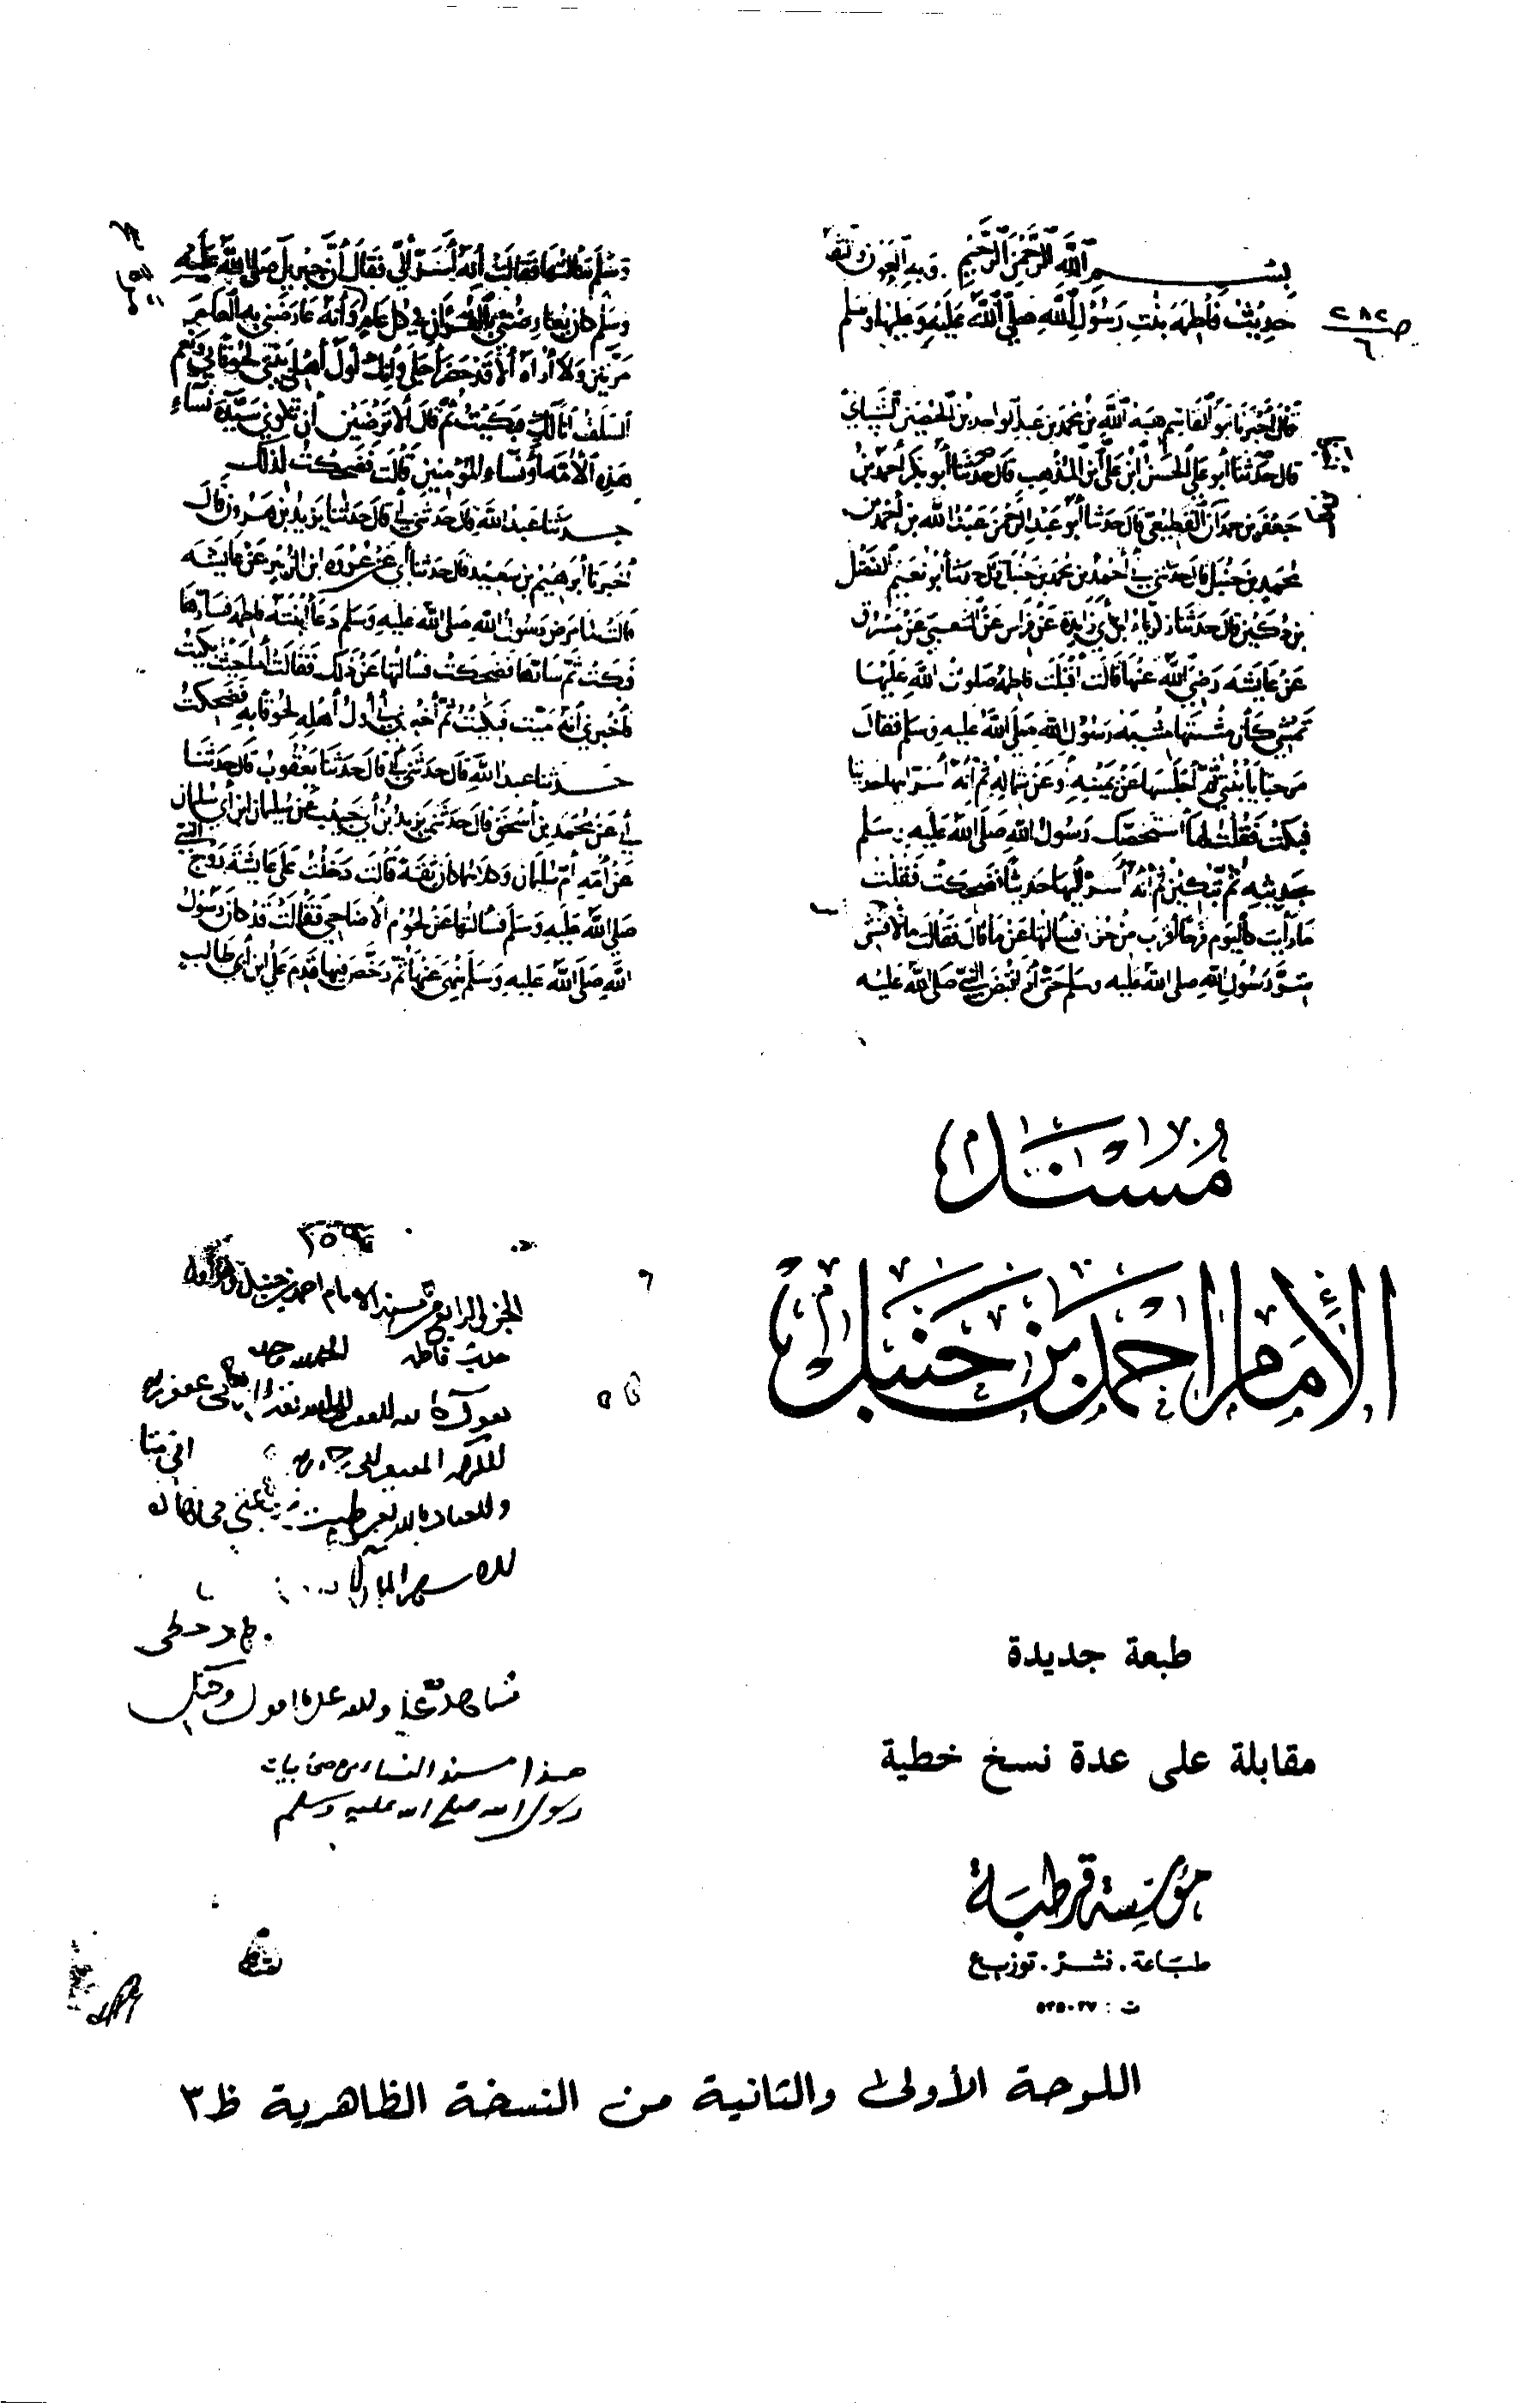 بسم الله الرحمن الرحيم . وبه العون والثقة
حديث فاطمة بنت رسول الله صلى الله عليه وعليها وسلم
ص ٢٨٢
٦
قال أخبرنا أبو القاسم هبة الله بن محمد بن عبد الواحد بن الحصين الشيباني
قال حدثنا أبو علي الحسن ابن علي ابن المذهب قال حدثنا أبو بكر أحمد بن
جعفر بن حمدان القطيعي قال حدثنا أبو عبد الرحمن عبد الله بن أحمد بن
محمد بن حنبل قال حدثني أبي أحمد بن محمد بن حنبل قال حدثنا أبو نعيم الفضل
بن دكين قال حدثنا زكرياء ابن أبي زايدة عن فراس عن الشعبي عن مسروق
عن عايشة رضي الله عنها قالت أقبلت فاطمة صلوت الله عليها
تمشي كأن مشيتها مشية رسول الله صلى الله عليه وسلم فقال
مرحبا يا بنتي ثم أجلسها عن يمينه أو عن شماله ثم أنه أسر إليها حديثا
فبكت فقلت لها استخصك رسول الله صلى الله عليه وسلم
بحديثه ثم تبكين ثم أنه أسر إليها حديثا فضحكت فقلت
ما رأيت كاليوم فرحا أقرب من حزن فسألتها عن ما قال فقالت ما كنت لأفشي
سر رسول الله صلى الله عليه وسلم حتى إذا قبض النبي صلى الله عليه
وسلم سألتها فقالت إنه أسر إلي فقال أن جبريل صلى الله عليه
وسلم كان يعارضني بالقرآن في كل عام وأنه عارضني به العام
مرتين ولا أراه ألا قد حضر أجلي وإنك أول أهل بيتي لحوقا بي ونعم
السلف أنا لك فبكيت ثم قال ألا ترضين أن تكوني سيدة نساء
هذه الأمة أو نساء المؤمنين قالت فضحكت لذلك
حدثنا عبد الله قال حدثني أبي قال حدثنا يزيد بن هرون قال
أخبرنا أبرهيم بن سعيد قال حدثنا أبي عن عروة ابن الزبير عن عايشة
قالت لما مرض رسول الله صلى الله عليه وسلم دعا ابنته فاطمة فسارها
فبكت ثم سارها فضحكت فسألتها عن ذلك فقالت أما حيث بكيت
فأخبرني أنه ميت فبكيت ثم أخبرني أني أول أهله لحوقا به فضحكت
حدثنا عبد الله قال حدثني أبي قال حدثنا يعقوب قال حدثنا
أبي عن محمد بن أسحق قال حدثني يزيد بن أبي حبيب عن سليمان ابن أبي سليمان
عن أمه أم سليمان وكلاهما كان ثقة قالت دخلت على عايشة زوج النبي
صلى الله عليه وسلم فسألتها عن لحوم الأضاحي فقالت قد كان رسول
الله صلى الله عليه وسلم نهى عنها ثم رخص فيها قدم علي ابن أبي طالب
مسند
الإمام أحمد بن حنبل
طبعة جديدة
مقابلة على عدة نسخ خطية
مؤسسة قرطبة
طباعة . نشر . توزيع
ت : ٥٣٥٠٢٧
الجزء الرابع من مسند الامام احمد بن حنبل
حديث فاطمة
هذا مسند النساء من صحابيات
رسول الله صلى الله عليه وسلم
اللوحة الأولى والثانية من النسخة الظاهرية ظ٣